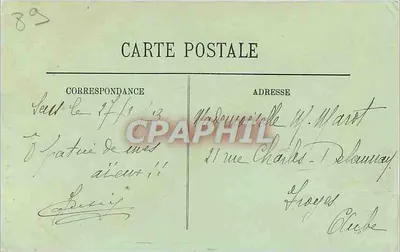 89
CARTE POSTALE
CORRESPONDANCE
ADRESSE
le 27/
Ô patrie de mes
aïeux !!
Mademoiselle M. Marot
21 rue Charles-Delaunay
Troyes
Aube
CPAPHIL